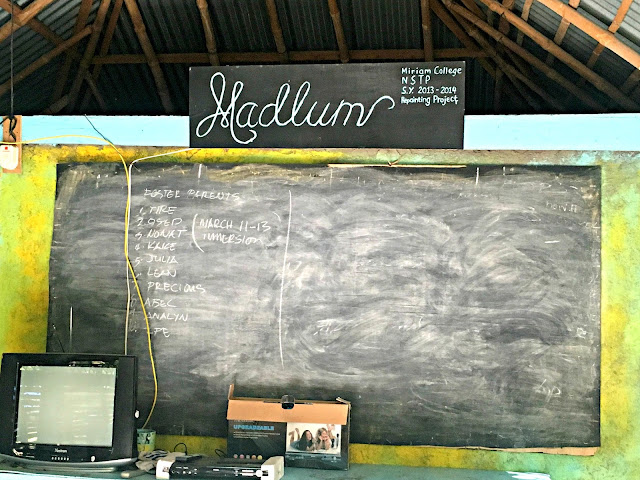 Madlum
Miriam College
NSTP
S.Y. 2013-2014
Repainting Project
FOSTER PARENTS
1. TIRE
2. OSEP
3. NONAT
4. KAKE
5. JULIA
LEAN
PRECIOUS
ABEL
ANALYN
EPE
(MARCH 11-13
IMMERSION
UPGRADEABLE